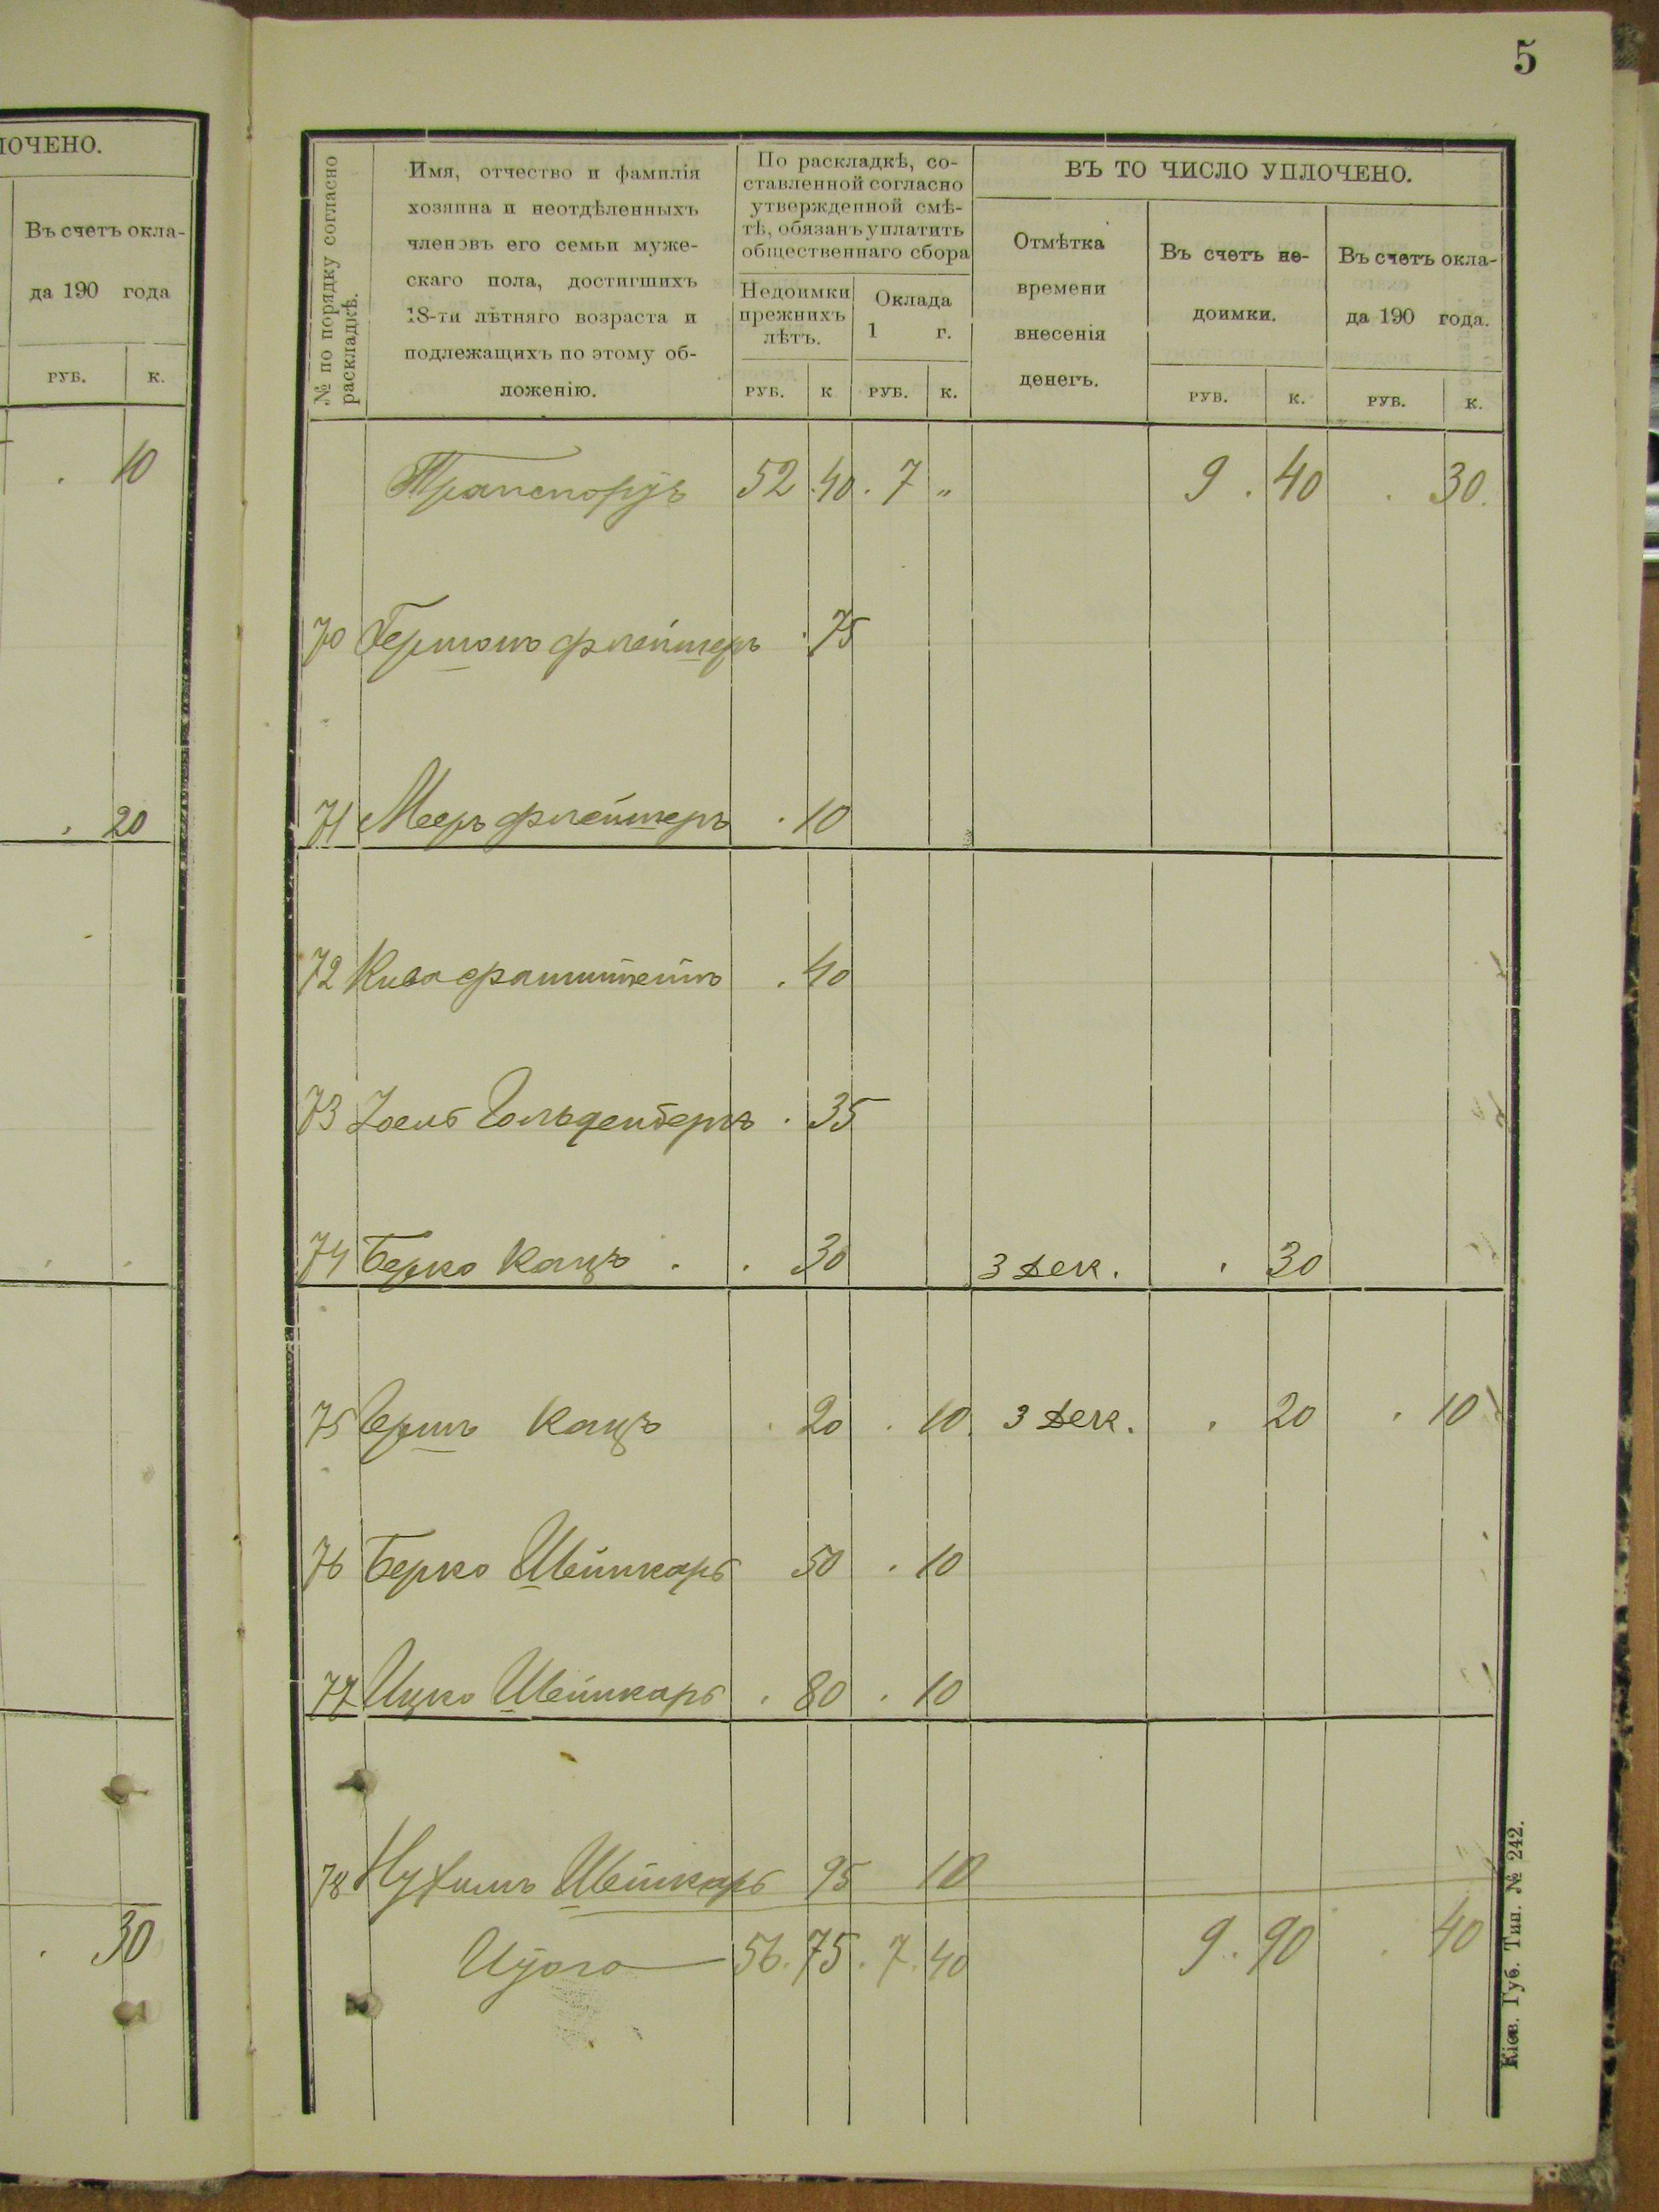 ЛОЧЕНО.
Въ счетъ окла-
да 190 года
РУБ. К.
. 10
. 20
. 30
5
№ по порядку согласно
раскладкѣ.
Имя, отчество и фамилія
хозяина и неотдѣленныхъ
членовъ его семьи муже-
скаго пола, достигшихъ
18-ти лѣтняго возраста и
подлежащихъ по этому об-
ложенію.
По раскладкѣ, со-
ставленной согласно
утвержденной смѣ-
тѣ, обязанъ уплатить
общественнаго сбора
Недоимки
прежнихъ
лѣтъ.
РУБ. К
Оклада
1 г.
РУБ. К.
ВЪ ТО ЧИСЛО УПЛОЧЕНО.
Отмѣтка
времени
внесенія
денегъ.
Въ счетъ не-
доимки.
РУБ. К.
Въ счетъ окла-
да 190 года.
РУБ. К.
Транспортъ 52 40 . 7 „ 9 . 40 . 30.
70 Гершонъ Флейшеръ . 75
71 Мееръ Флейшеръ . 10
72 Кива . 40
73 Іоель Гольденбергъ . 35
74 Берко Кацъ . . 30 3 Дек. . 30
75 Гершъ Кацъ . 20 . 10 3 Дек. . 20 . 10
76 Берко Шейнкаръ 50 . 10
77 Ицко Шейнкаръ . 80 . 10
78 Нухимъ Шейнкаръ 95 10
Итого 56. 75. 7. 40 9. 90 . 40
Кіев. Губ. Тип. № 242.